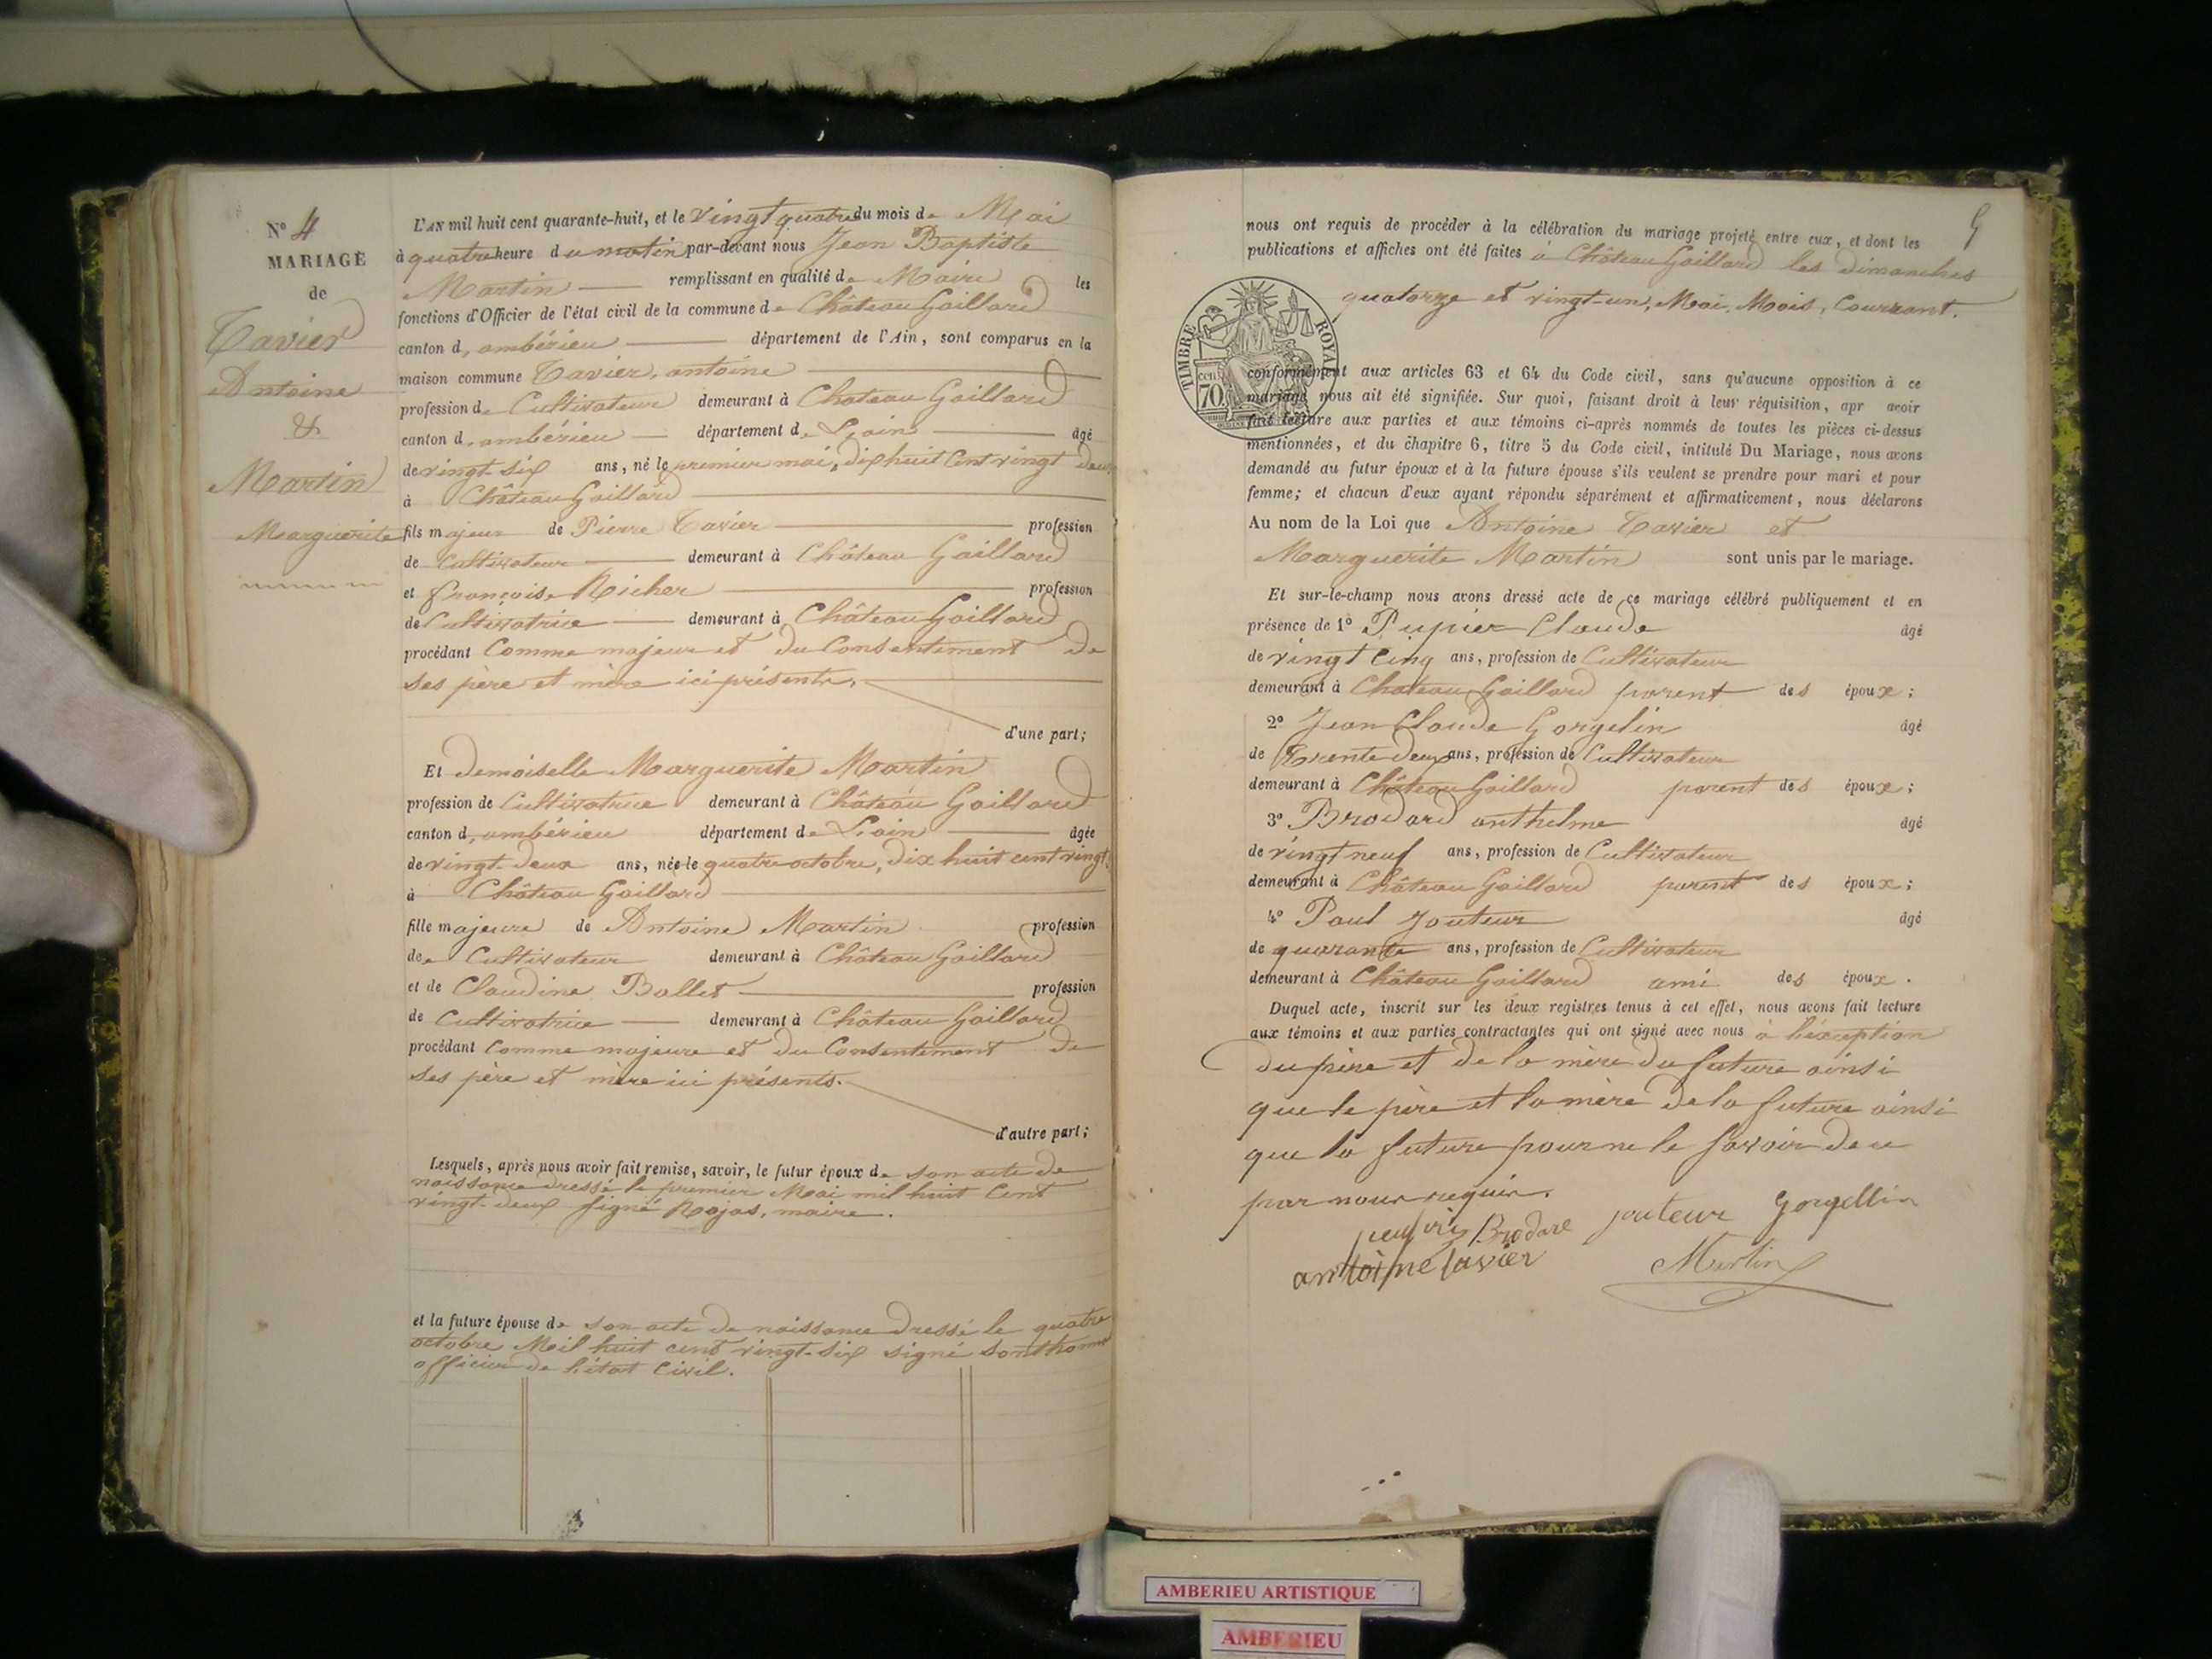 Nº 4
MARIAGE
de
Tavier
Antoine
&
Martin
Marguerite
L'AN mil huit cent quarante-huit, et le vingt quatre du mois de Mai
à quatre heure du matin par-devant nous Jean Baptiste
Martin remplissant en qualité de Maire les
fonctions d'Officier de l'état civil de la commune de Château Gaillard
canton d'ambérieu département de l'Ain, sont comparus en la
maison commune Tavier, antoine
profession de Cultivateur demeurant à Chateau Gaillard
canton d'ambérieu département de L'ain âgé
de vingt-six ans, né le premier mai, dix huit Cent vingt deux
à Château Gaillard
fils majeur de Pierre Tavier profession
de Cultivateur demeurant à Château Gaillard
et françoise Richer profession
de Cultivatrice demeurant à Château Gaillard
procédant Comme majeur et du Consentement de
ses père et mère ici présents,
d'une part;
Et demoiselle Marguerite Martin
profession de Cultivatrice demeurant à Château Gaillard
canton d'ambérieu département de L'ain âgée
de vingt-deux ans, née le quatre octobre, dix huit cent vingt
à Château Gaillard
fille majeure de Antoine Martin profession
de Cultivateur demeurant à Château Gaillard
et de Claudine Ballet profession
de Cultivatrice demeurant à Château Gaillard
procédant Comme majeure et du Consentement de
ses père et mère ici présents.
d'autre part;
Lesquels, après nous avoir fait remise, savoir, le futur époux de son acte de
naissance dressé le premier Mai mil huit Cent
vingt-deux signé Rojas, maire.
et la future épouse de son acte de naissance dressé le quatre
octobre Mil huit cent vingt-six signé
officier de l'état Civil.
5
nous ont requis de procéder à la célébration du mariage projeté entre eux, et dont les
publications et affiches ont été faites à Château Gaillard les dimanches
quatorze et vingt-un, Mai, Mois, Courrant.
TIMBRE ROYAL
cen 70
conformément aux articles 63 et 64 du Code civil, sans qu'aucune opposition à ce
mariage nous ait été signifiée. Sur quoi, faisant droit à leur réquisition, apr avoir
fait lecture aux parties et aux témoins ci-après nommés de toutes les pièces ci-dessus
mentionnées, et du chapitre 6, titre 5 du Code civil, intitulé Du Mariage, nous avons
demandé au futur époux et à la future épouse s'ils veulent se prendre pour mari et pour
femme; et chacun d'eux ayant répondu séparément et affirmativement, nous déclarons
Au nom de la Loi que Antoine Tavier et
Marguerite Martin sont unis par le mariage.
Et sur-le-champ nous avons dressé acte de ce mariage célébré publiquement et en
présence de 1º Pupier Claude âgé
de vingt Cinq ans, profession de Cultivateur
demeurant à Chateau Gaillard parent des époux;
2º Jean Claude Gorgelin âgé
de Trente deux ans, profession de Cultivateur
demeurant à Château Gaillard parent des époux;
3º Brodard anthelme âgé
de vingt neuf ans, profession de Cultivateur
demeurant à Château Gaillard parent des époux;
4º Paul Jouteur âgé
de quarante ans, profession de Cultivateur
demeurant à Château Gaillard ami des époux.
Duquel acte, inscrit sur les deux registres tenus à cet effet, nous avons fait lecture
aux témoins et aux parties contractantes qui ont signé avec nous à l'éxception
du père et de la mère du future ainsi
que le père et la mère de la future ainsi
que la future pour ne le savoir de ce
par nous requis.
Brodard jouteur Gorgellin
antoine tavier Martin
AMBERIEU ARTISTIQUE
AMBERIEU